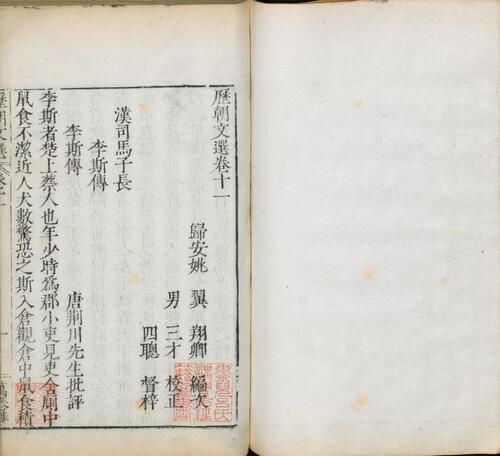 歷朝文選卷十一
歸安姚 翼 翔卿 編次
男 三才 校正
四聰 督梓
漢司馬子長
李斯傳
李斯傳 唐荊川先生批評
李斯者楚上蔡人也年少時爲郡小吏見吏舍厠中
鼠食不潔近人犬數驚恐之斯入倉觀倉中鼠食積
歷朝文選 卷十一 一